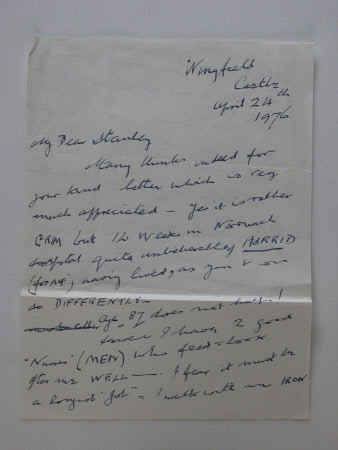 Wingfield
Castle
April 24th
1976
My Dear Stanley
Many thanks indeed for
your kind letter which is very
much appreciated – Yes it is rather
GRIM but 12 weeks in Norwich
Hospital quite unbelievably HORRID
(for ME) having lived, as you & I
so DIFFERENTLY –
Age 87 does not help!
I have 2 good
"Nurses" (MEN) who feed & look
after me WELL – I fear it must be
a longish "Job" – I walk with an IRON